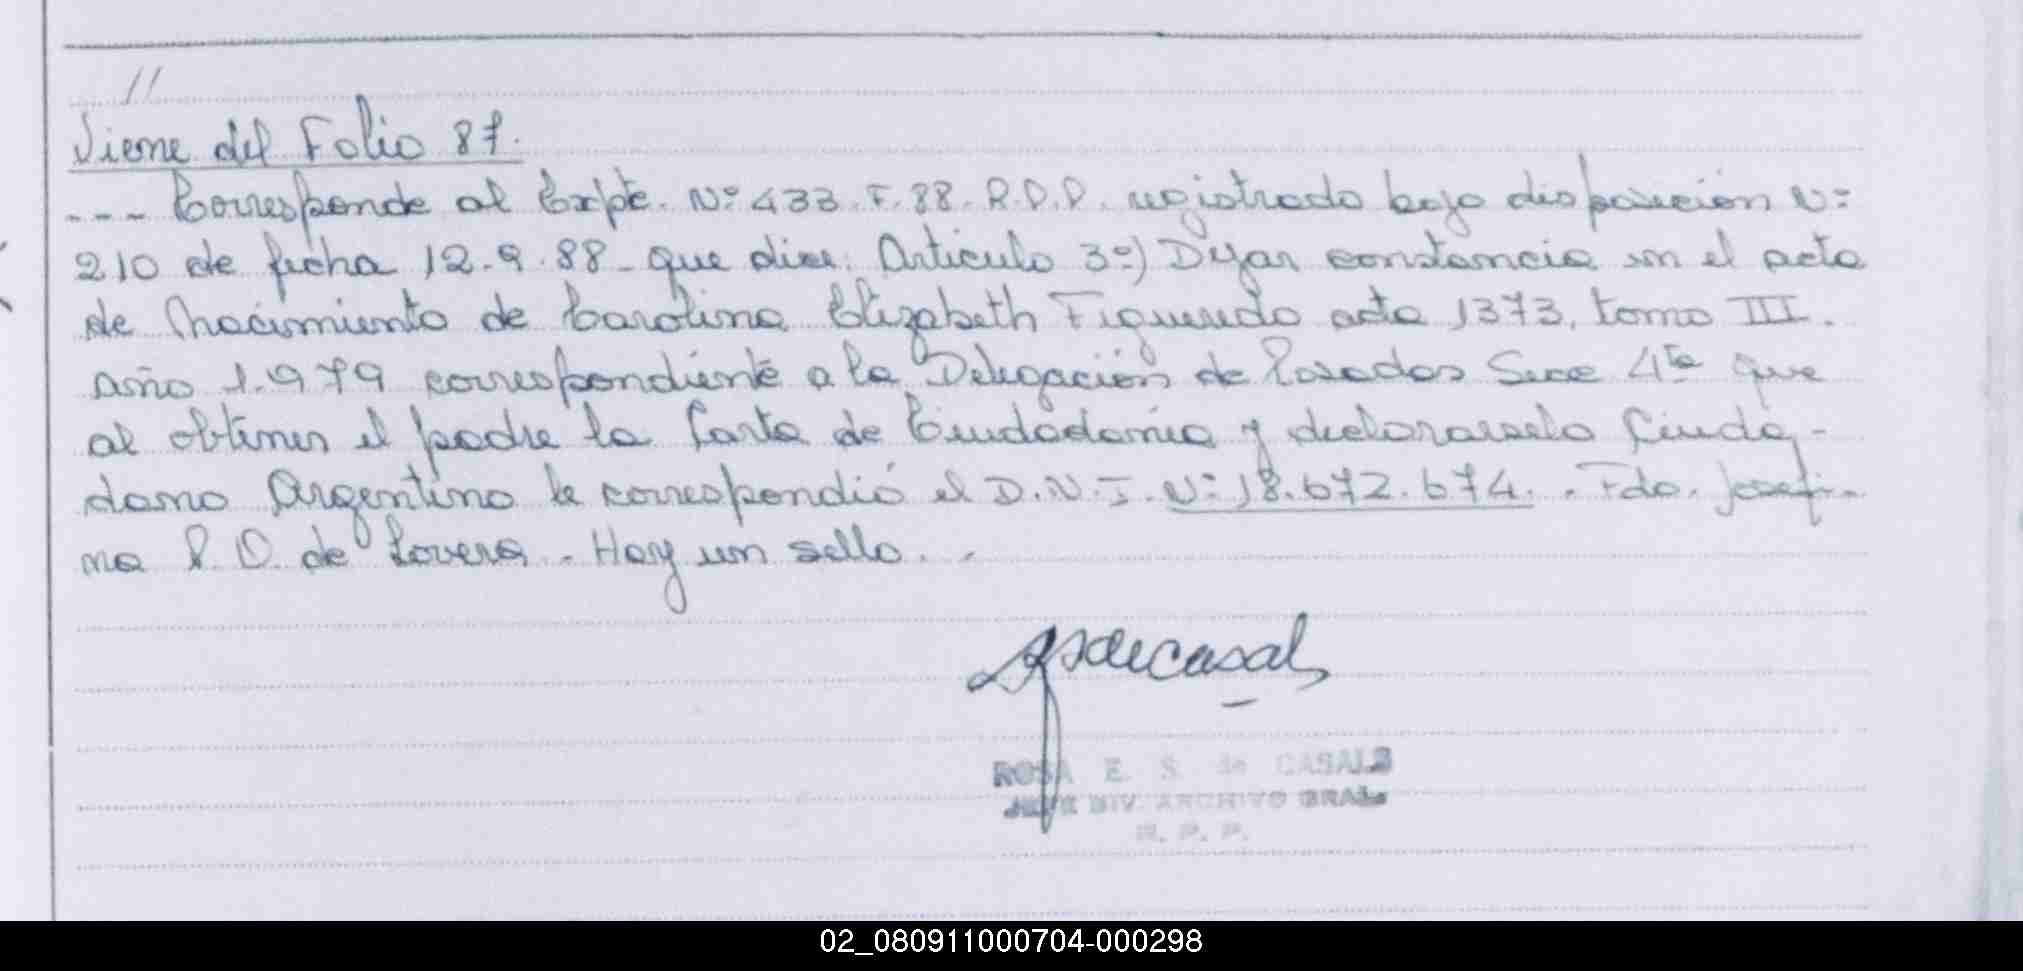 11
Viene del Folio 87.
--- Corresponde al Expte. Nº 433.F.88. R.P.P. registrado bajo disposición Nº
210 de fecha 12.9.88 - que dice: Artículo 3º) Dejar constancia en el acta
de Nacimiento de Carolina Elizabeth Figueredo acta 1373, tomo III.
año 1.979 correspondiente a la Delegación de Posadas Secc 4ta que
al obtener el padre la Carta de Ciudadanía y declararselo Ciuda-
dano Argentino le correspondió el D.N.I. Nº 18.672.674. . Fdo. Josefi-
na P. O. de Lovera . Hay un sello . -
RSdeCasals
ROSA E. S. de CASALS
JEFE DIV. ARCHIVO GRAL.
R. P. P.
02_080911000704-000298